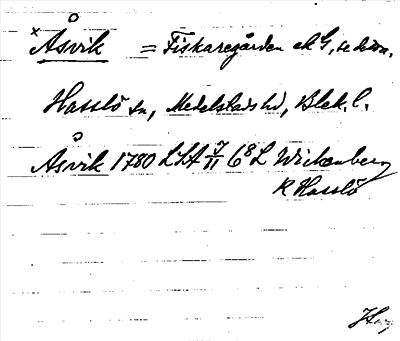 × Åsvik = Fiskaregården ek G, se detta.
Hasslö sn, Medelstads hd, Blek. l.
Åsvik 1780 LSA J/11 6⁸ L Wickenberg
R Hasslö